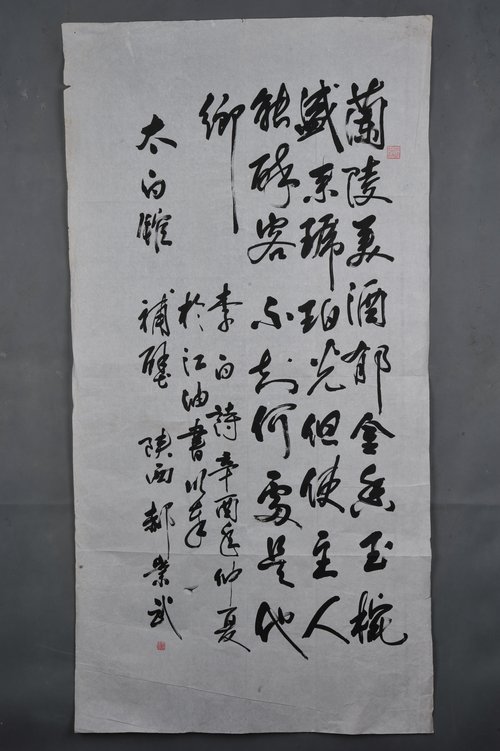 蘭陵美酒郁金香玉椀
盛来琥珀光但使主人
能醉客不知何處是他
鄉
李白詩辛酉年仲夏
於江油書以奉
太白館 補壁 陕西郝武